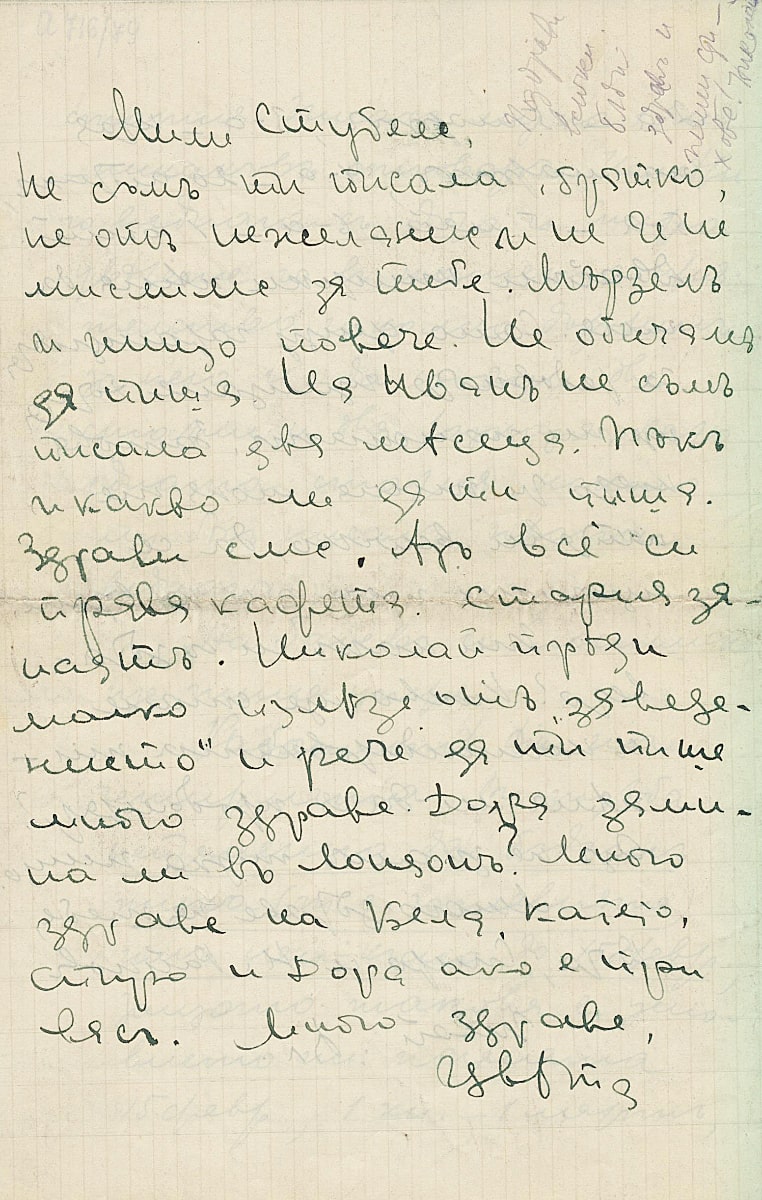 Мили Стубеле,
не съмъ ти писала, братко,
не отъ нежелание и не че не
мислиме за тебе. Мързелъ
и нищо повече. Не обичамъ
да пиша. На Иванъ не съмъ
писала два мѣсеца. Пъкъ
и какво ли да ти пиша.
Здрави сме. Азъ всё си
правя кафета. Стария за-
наятъ. Николай прѣди
малко излѣзе отъ „заведе-
нието“ и рече да ти пише
много здраве. Дора зами-
на ли въ Лондонъ? Много
здраве на Беля, Катето,
Спиро и Дора ако е при
васъ. Много здраве,
Цвѣта
Поздрави
всички.
бѫди
здравъ и
пиши
Николай